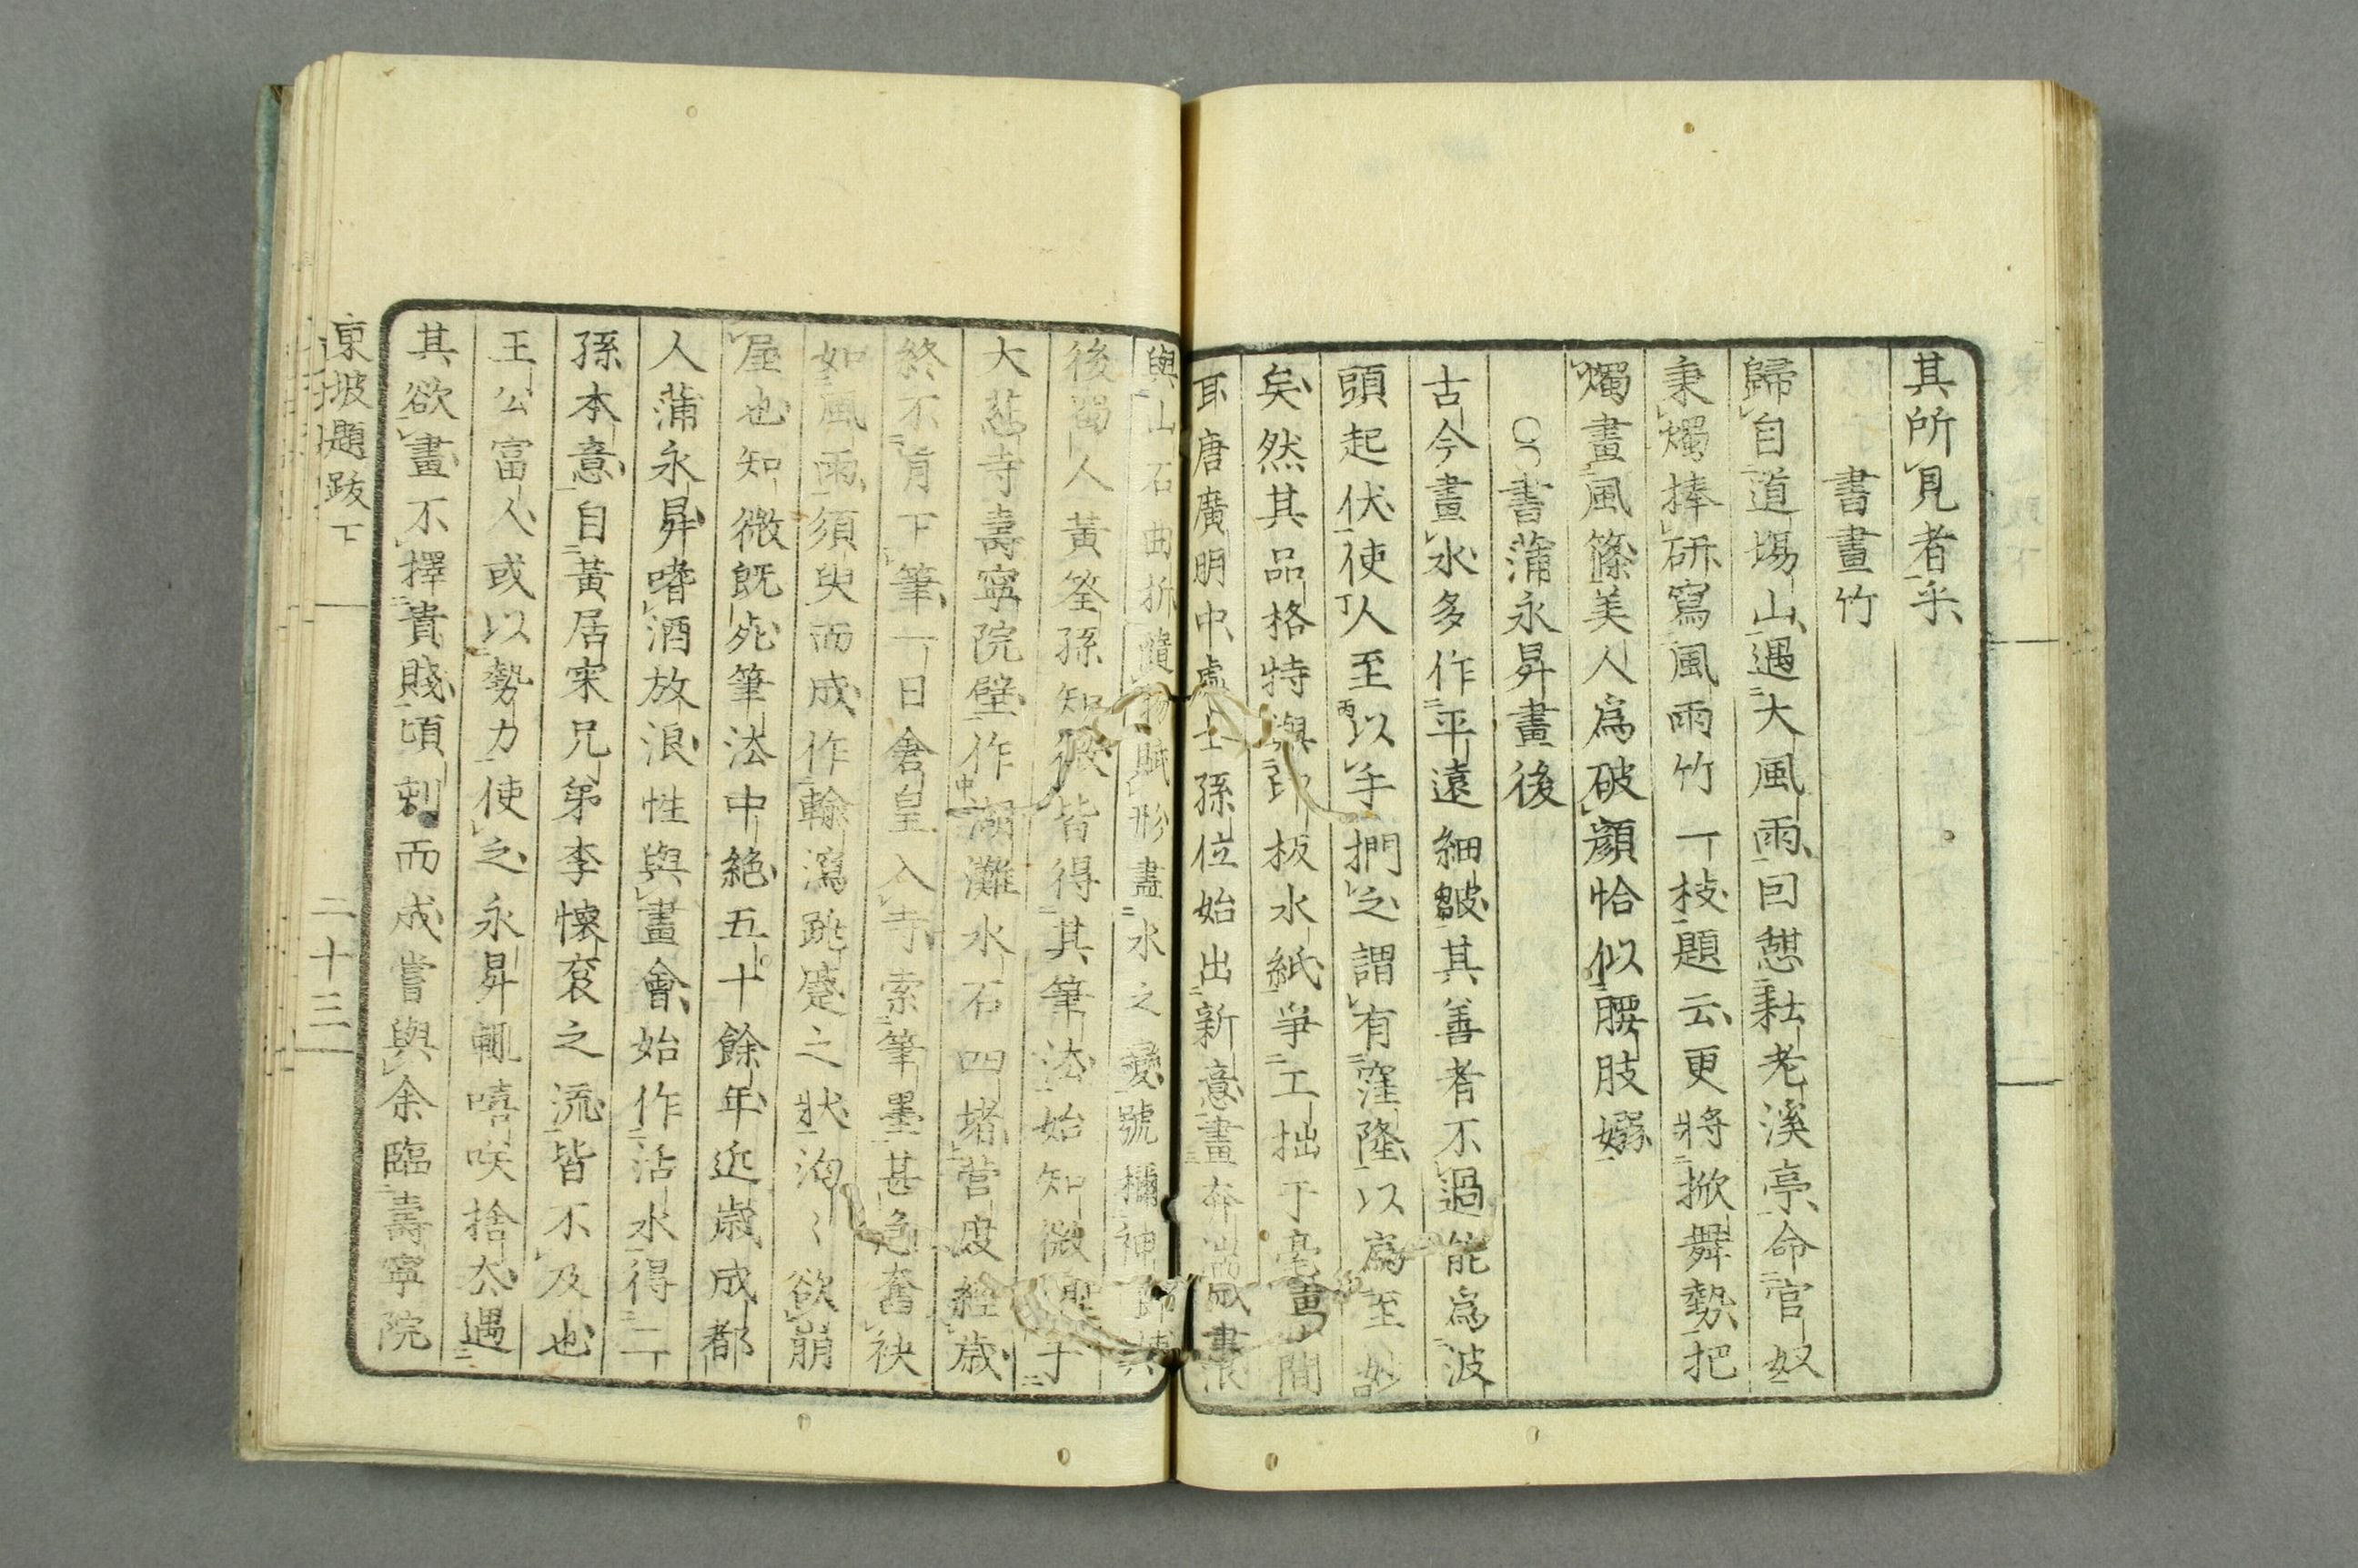 其所見者乎
書畫竹
歸自道塲山遇大風雨囙憇耘老溪亭命官奴
秉燭捧硏寫風雨竹一枝題云更將掀舞勢把
燭畫風篠美人爲破顔恰似腰肢嫋
書蒲永昇畫後
古今畫水多作平遠細皺其善者不過能爲波
頭起伏使人至以手捫之謂有窪隆以爲至妙
矣然其品格特與印板水紙爭工拙于毫間
耳唐廣明中處士孫位始出新意畫奔
與山石曲折隨物賦形盡水之變號稱神
後蜀人黃筌孫知微皆得其筆法始知微
大慈寺壽寧院壁作湖灘水石四堵營度經歲
終不肯下筆一日倉皇入寺索筆墨甚急奮袂
如風雨須臾而成作輸瀉跳蹙之狀洶〻欲崩
屋也知微旣死筆法中絶五十餘年近歲成都
人蒲永昇嗜酒放浪性與畫會始作活水得二
孫本意自黃居寀兄弟李懷袞之流皆不及也
王公富人或以勢力使之永昇輒嘻咲捨去遇
其欲畫不擇貴賤頃刻而成嘗與余臨壽寧院
東坡題跋下
二十三